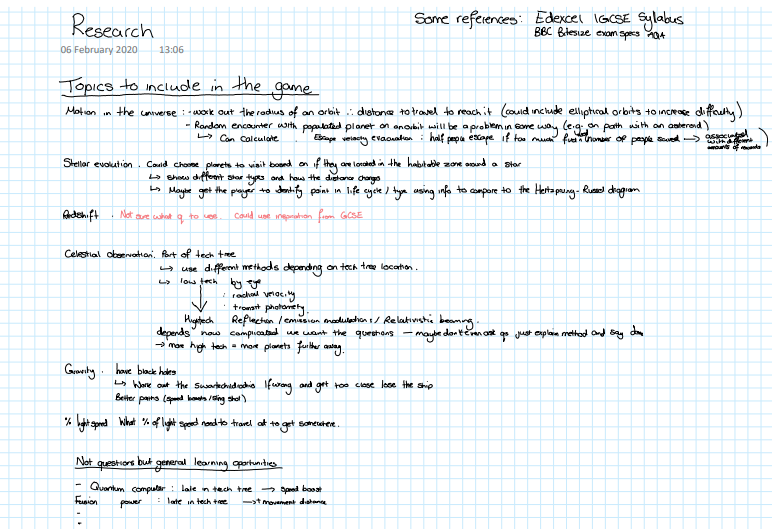 Research
Some references: Edexcel IGCSE Syllabus
BBC Bitesize exam specs AQA
06 February 2020 13:06
Topics to include in the game
Motion in the universe : - work out the radius of an orbit ∴ distance to travel to reach it (could include elliptical orbits to increase difficulty)
- Random encounter with populated planet on an orbit will be a problem in some way (e.g. on path with an asteroid)
↳ Can calculate . Escape velocity evacuation : half people escape if too much fuel used (number of people saved → associated with different amounts of rewards)
Stellar evolution . Could choose planets to visit based on if they are located in the habitable zone around a star
↳ show different star types and how the distance changes
↳ Maybe get the player to identify point in life cycle / type using info to compare to the Hertzprung-Russel diagram
Redshift . Not sure what q to use. Could use inspiration from GCSE
Celestial observation: Part of tech tree
↳ use different methods depending on tech tree location.
↳ low tech by eye
: radial velocity
: transit photometry
High tech Reflection / emission modulations / Relativistic beaming.
depends how complicated we want the questions — maybe don't even ask qs just explain method and say
→ more high tech = more planets further away.
Gravity . have black holes
↳ Work out the If wrong and get too close lose the ship
Better paths (speed boosts / sling shot)
% light speed What % of light speed need to travel at to get somewhere.
Not questions but general learning oportunities
- Quantum computer : late in tech tree → speed boost
Fusion power : late in tech tree → ↑ movement distance
-
-